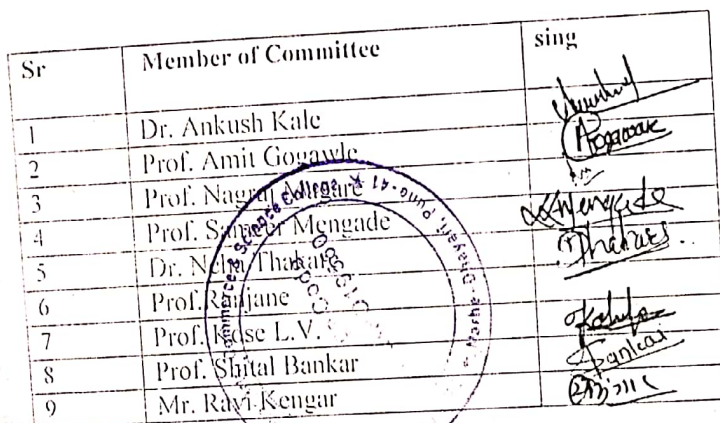 Sr Member of Committee sing
1 Dr. Ankush Kale
2 Prof. Amit Gogawle
3 Prof. Nagraj Magare
4 Prof. Sameer Mengade Mengade
5 Dr. Neha Thakare Thakare
6 Prof. Ranjane
7 Prof. Kose L.V.
8 Prof. Shital Bankar Bankar
9 Mr. Ravi Kengar
Commerce & Science College ★ Narhe Dhayari, Pune-41